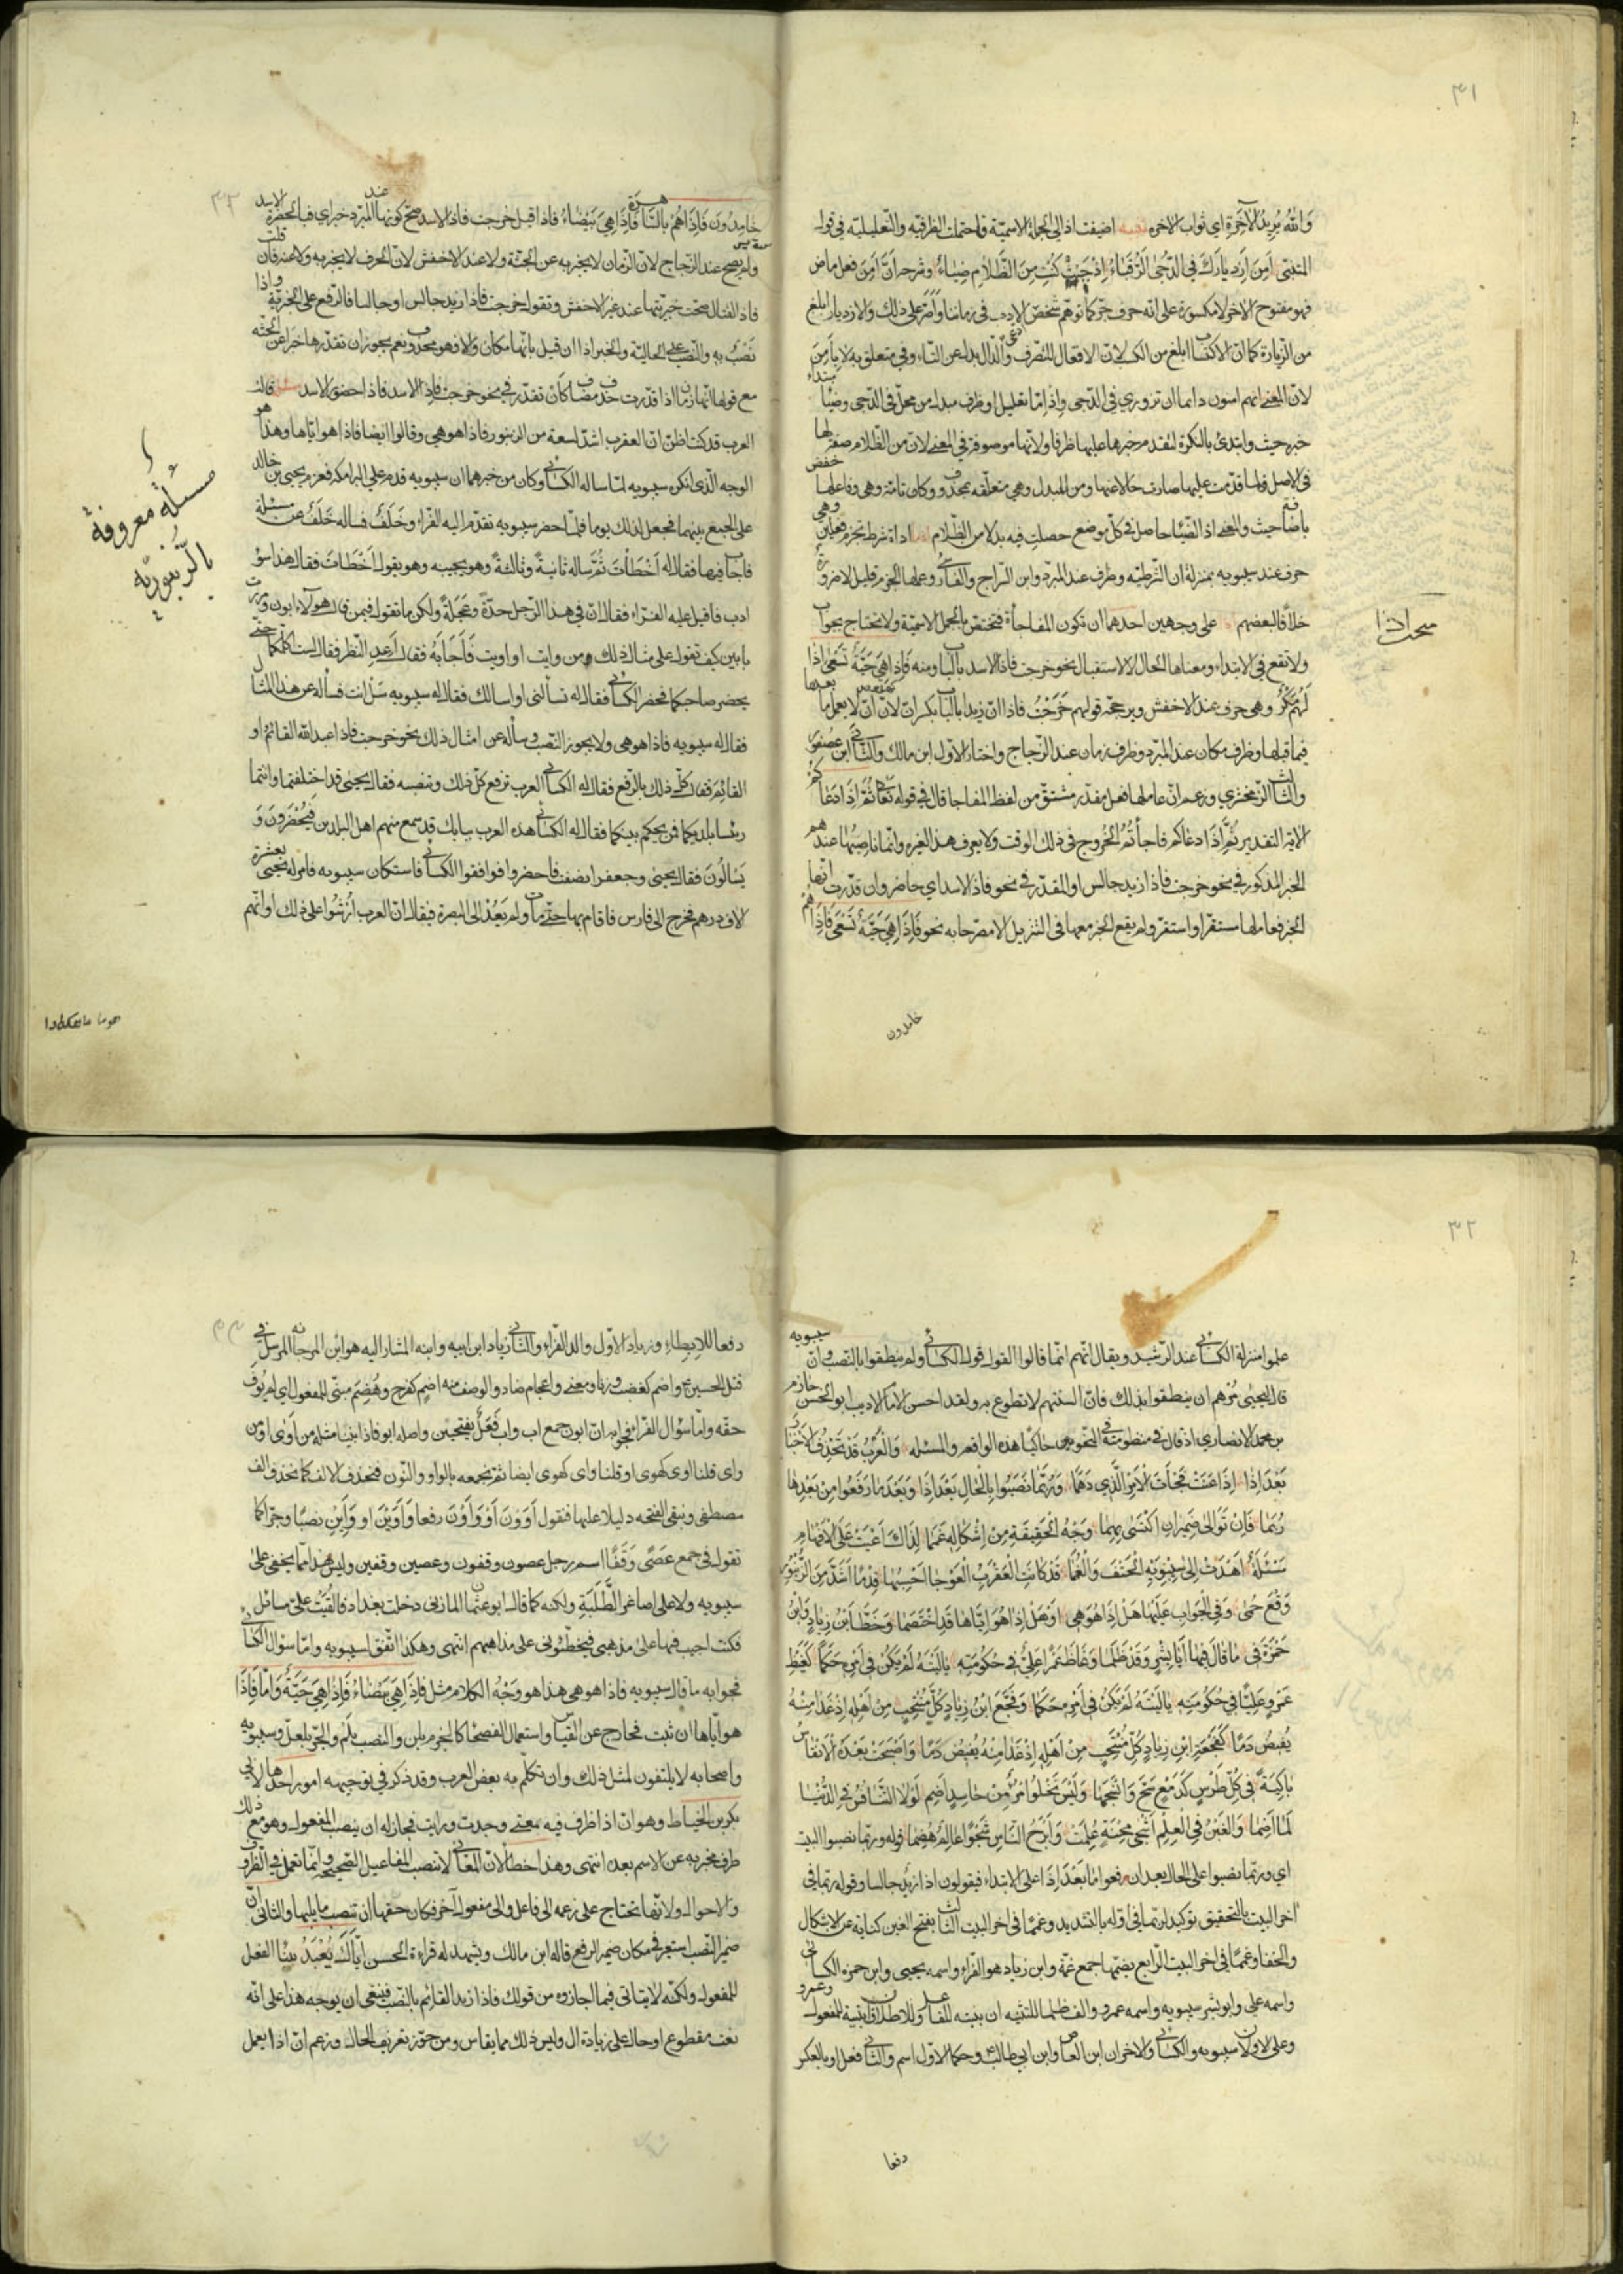 ٣١
وَاللهُ يُرِيدُ الْآخِرَةَ اي ثواب الاخرة اضيفت اذ الى الجملة الاسمية واحتملت الظرفية والتعليلية في قول
المتنبي اَمِنَ اِزدِيارَكِ فِي الدُّجَى الرُّقَبَاءُ اِذْ حَيْثُ كُنْتِ مِنَ الظَّلَامِ ضِيَاءُ وشرحه اَنَّ اَمِنَ فعل ماض
فهو مفتوح الاخر لا مكسورة على انه حرف جر كما توهم شخص ادعى الادب في زماننا واصر على ذلك والازديار ابلغ
من الزيارة كما ان الاكتساب ابلغ من الكسب لان الافتعال للتصرف والدال بدل عن التاء وفي متعلق به لا بِاَمِنَ
لان المعنى انهم امنون دائما ان تزوري في الدجى واذ اما تعليل او ظرف مبدل من محل في الدجى وضياء مبتدا
خبره حيث وابتدئ بالنكرة لتقدم خبرها عليها ظرفا ولانها موصوفة في المعنى لان من الظلام صفة لها
في الاصل فلما قدمت عليها صارت حالا عنها ومن للبدل وهي متعلقة بمحذوف وكان تامة وهي وفاعلها خفض
باضافة حيث والمعنى اذ الضياء حاصل في كل موضع حصلت فيه بدلا من الظلام اداة شرط تجزم فعلين وهي
حرف عند سيبويه بمنزلة ان الشرطية وظرف عند المبرد وابن السراج والفارسي وعملها الجزم قليل لا ضرورة
خلافا لبعضهم على وجهين احدهما ان تكون للمفاجأة فتختص بالجمل الاسمية ولا تحتاج بجواب
ولا تقع في الابتداء ومعناها الحال لا الاستقبال نحو خرجت فاذا الاسد بالباب ومنه فَإِذَا هِيَ حَيَّةٌ تَسْعَى إِذَا
لَهُمْ مَكْرٌ وهي حرف عند الاخفش ويرجحه قولهم خَرَجْتُ فاذا ان زيدا بالباب بكسر ان لان ان لا يعمل ما بعدها
فيما قبلها وظرف مكان عند المبرد وظرف زمان عند الزجاج واختار الاول ابن مالك والثاني ابن عصفور
والثالث الزمخشري وزعم ان عاملها فعل مقدر مشتق من لفظ المفاجاة قال في قوله تعالى ثُمَّ إِذَا دَعَاكُمْ
الاية التقدير ثُمَّ إِذَا دعاكم فاجأتُمُ الخروج في ذلك الوقت ولا يعرف هذا لغيره وانما ناصبها عندهم
الخبر المذكور في نحو خرجت فاذا زيد جالس او المقدر في نحو فاذا الاسد اي حاضر وان قدرت انها
الخبر فعاملها مستقر او استقر ولم يقع الخبر معها في التنزيل الا مصرحا به نحو فَإِذَا هِيَ حَيَّةٌ تَسْعَى فَإِذَا هُمْ
خامدون
مبحث اذا
٣٢
خَامِدُونَ فَإِذَا هُمْ بِالسَّاهِرَةِ فَإِذَا هِيَ بَيْضَاءُ فاذا قيل خرجت فاذا الاسد صح كونها عند المبرد خبرا اي فبالحضرة الاسد
ولم يصح عند الزجاج لان الزمان لا يخبر به عن الجثة ولا عند الاخفش لان الحرف لا يخبر به ولا عنه فان قلت
فاذا القتال صحت خبريتها عند غير الاخفش وتقول خرجت فاذا زيد جالس او جالسا فالرفع على الخبرية واذا
نَصْبٌ بِهِ والنصب على الحالية والخبر اذا ان قيل بانها مكان والا فهو محذوف نعم يجوز ان تقدرها خبرا عن الجثة
مع قولنا انها زمان اذا قدرت حذف مضاف كأن تقدر في نحو خرجت فاذا الاسد فاذا حضور الاسد مسئلة قالت
العرب قد كنت اظن ان العقرب اشد لسعة من الزنبور فاذا هو هي وقالوا ايضا فاذا هو اياها وهذا هو
الوجه الذي انكره سيبويه لما ساله الكسائي وكان من خبرهما ان سيبويه قدم على البرامكة فعزم يحيى بن خالد
على الجمع بينهما فجعل لذلك يوما فلما حضر سيبويه تقدم اليه الفراء وخَلَفٌ فساله خَلَفٌ عن مسئلة
فاجاب فيها فقال له اَخْطَأْتَ ثُمَّ ساله ثانيةً وثالثةً وهو يجيبه وهو يقول اَخْطَأتَ فقال هذا سوء
ادب فاقبل عليه الفراء فقال ان في هذا الرجل حدّةً وعَجَلَةً ولكن ما تقول فيمن قال هؤلاء ابون ومررت
بابين كيف تقول على مثال ذلك من وايت او اويت فَاَجَابَهُ فقال اَعِدِ النظر فقال لست اكلمكما حتى
يحضر صاحبكما فحضر الكسائي فقال له تسألني او اسالك فقال له سيبويه سَلْ انت فسأله عن هذا المثال
فقال له سيبويه فاذا هو هي ولا يجوز النصب وسأله عن امثال ذلك نحو خرجت فاذا عبد الله القائمُ او
القائمَ فقال كل ذلك بالرفع فقال له الكسائي العرب ترفع كل ذلك وتنصبه فقال يحيى قد اختلفتما وانتما
رئيسا بلديكما فمن يحكم بينكما فقال له الكسائي هذه العرب ببابك قد سمع منهم اهل البلدين فَيُحْضَرُونَ وَ
يُسَالُونَ فقال يحيى وجعفر انصفت فاحضروا فوافقوا الكسائي فاستكان سيبويه فامر له يحيى بعشرة
الاف درهم فخرج الى فارس فاقام بها حتى مات ولم يَعُدْ الى البصرة فيقال ان العرب اُرْشُوا على ذلك او انهم
مسئلة معروفة
بالزنبورية
٣٢
علموا منزلة الكسائي عند الرشيد ويقال انهم انما قالوا القول قول الكسائي ولم ينطقوا بالنصب وان سيبويه
قال ليحيى مُرْهم ان ينطقوا بذلك فان السنتهم لا تطوع به ولقد احسن الامام الاديب ابو الحسن حازم
بن محمد الانصاري اذ قال في منظومته في النحو حاكيا هذه الواقعة والمسئلة وَالْعُرْبُ قَدْ تَحْذِفُ الْاَخْبَارَ
بَعْدَ اِذَا اِذَا عَنَتْ فَجْأَةَ الْاَمْرِ الَّذِي دَهَمَا وَرُبَّمَا نَصَبُوا بِالْحَالِ بَعْدَ اِذَا وَبَعْدَ مَا رَفَعُوا مِنْ بَعْدِهَا
رُبَمَا فَاِنْ تَوَالَى ضَمِيرَانِ اكْتَسَى بِهِمَا وَجْهُ الْحَقِيقَةِ مِنْ اِشْكَالِهِ غَمَمَا لِذَاكَ اَعْيَتْ عَلَى الْاَفْهَامِ
مَسْئَلَةٌ اَهْدَتْ اِلَى سِيبَوَيْهِ الْحَتْفَ وَالْغُمَمَا قَدْ كَانَتِ الْعَقْرَبُ الْعَوْجَا اَحْسِبُهَا قِدْمًا اَشَدَّ مِنَ الزُّنْبُورِ
وَقْعَ حُمَى وَفِي الْجَوَابِ عَلَيْهَا هَلْ اِذَا هُوَ هِي اَوْ هَلْ اِذَا هُوَ اِيَّاهَا قَدِ اخْتَصَمَا وَخَطَّأَ ابْنُ زِيَادٍ وَابْنُ
حَمْزَةَ فِي مَا قَالَ فِيهَا اَبَا بِشْرٍ وَقَدْ ظَلَمَا وَغَاظَ عَمْرًا عَلِيٌّ فِي حُكُومَتِهِ يَا لَيْتَهُ لَمْ يَكُنْ فِي اَمْرِهِ حَكَمَا كَغَيْظِ
عَمْرٍو عَلِيًّا فِي حُكُومَتِهِ يَا لَيْتَهُ لَمْ يَكُنْ فِي اَمْرِهِ حَكَمَا وَفَجَّعَ ابْنُ زِيَادٍ كُلَّ مُنْتَحِبٍ مِنْ اَهْلِهِ اِذْ غَدَا مِنْهُ
يُفِيضُ دَمًا كَفَجْعَةِ ابْنِ زِيَادٍ كُلَّ مُنْتَحِبٍ مِنْ اَهْلِهِ اِذْ غَدَا مِنْهُ يُفِيضُ دَمًا وَاَصْبَحَتْ بَعْدَهُ الْاَنْفَاسُ
بَاكِيَةً فِي كُلِّ طِرْسٍ كَدَمْعٍ سَحَّ وَانْسَجَمَا وَلَيْسَ يَخْلُو امْرُؤٌ مِنْ حَاسِدٍ اَضِمٍ لَوْلَا التَّنَافُسُ فِي الدُّنْيَا
لَمَا اَضِمَا وَالْغَبْنُ فِي الْعِلْمِ اَشْجَى مِحْنَةٍ عُلِمَتْ وَاَبْرَحُ النَّاسِ شَجْوًا عَالِمٌ هُضِمَا قوله وربما نصبوا البيت
اي وربما نصبوا على الحال بعد ان رفعوا ما بَعْدَ اِذَا على الابتداء فيقولون اذا زيد جالسا وقوله ربما في
اخر البيت بالتخفيف توكيد لربما في اوله بالتشديد وغمما في اخر البيت الثالث بفتح الغين كناية عن الاشكال
والخفا وغمما في اخر البيت الرابع بضمها جمع غمة وابن زياد هو الفراء واسمه يحيى وابن حمزة الكسائي
واسمه علي وابو بشر سيبويه واسمه عمرو والف ظلما للتثنيه ان بنيته للفاعل وللاطلاق ان بنيته للمفعول وعمرو
وعلي الاولان سيبويه والكسائي والاخران ابن العاص وابن ابي طالب وحكما الاول اسم والثاني فعل او بالعكس
دفعا
٣٣
دفعا للايطاء وزياد الاول والد الفراء والثاني زياد ابن ابيه وابنه المشار اليه هو ابن مرجانة المرسل في
قتل الحسين واضم كغضب وزنا ومعنى واعجام ضاد والوصف منه اضم كفرح وهُضِمَ مبني للمفعول اي لم يُوَفَّ
حقه واما سؤال الفراء فجوابه ان ابون جمع اب واب فَعَلٌ بفتحتين واصله ابو فاذا بنينا مثله من اَوَى او من
واى قلنا اوى كهوى او قلنا واى كهوى ايضا ثم نجمعه بالواو والنون فنحذف الالف كما نحذف الف
مصطفى ونبقي الفتحه دليلا عليها فنقول اَوَوْنَ اَوْ وَاَوْنَ رفعا وَاَوَيْنَ او وَأَيْنَ نصبا وجرا كما
تقول في جمع عَصًى وَقَفًا اسم رجل عصون وقفون وعصين وقفين وليس هذا مما يخفى على
سيبويه ولا على اصاغر الطَّلَبَةِ ولكنه كما قال ابو عثمان المازني دخلت بغداد فاُلْقِيَتْ علي مسائل
فكنت اجيب فيها على مذهبي فيخطّئونى على مذاهبهم انتهى وهكذا اتفق لسيبويه واما سؤال الكسائي
فجوابه ما قال سيبويه فاذا هو هي هذا هو وَجْهُ الكلام مثل فَإِذَا هِيَ بَيْضَاءُ فَإِذَا هِيَ حَيَّةٌ وَاَمَّا فَإِذَا
هو اياها ان ثبت فخارج عن القياس واستعمال الفصحا كالجزم بلن والنصب بِلَم والجر بلعل وسيبويه
واصحابه لا يلتفون لمثل ذلك وان تكلم به بعض العرب وقد ذكر في توجيهه امور احدها لابي
بكر بن الخياط وهو ان اذا ظرف فيه معنى وجدت ورايت فجاز له ان ينصب المفعول وهو مع ذلك
ظرف مخبر به عن الاسم بعده انتهى وهذا خطأ لان المعاني لا تنصب المفاعيل الصحيحة وانما تعمل في الظروف
والاحوال ولانها تحتاج على زعمه الى فاعل والى مفعول آخر فكان حقها ان تنصب ما يليها والثاني ان
ضمير النصب استعير في مكان ضمير الرفع قاله ابن مالك ويشهد له قراءة الحسن اِيَّاكَ يُعْبَدُ ببناء الفعل
للمفعول ولكنه لا يتاتى فيما اجازوه من قولك فاذا زيد القائم بالنصب فينبغي ان يوجه هذا على انه
نعت مقطوع او حال على زيادة ال وليس ذلك مما يقاس ومن جوز تعريف الحال وزعم ان اذا يعمل